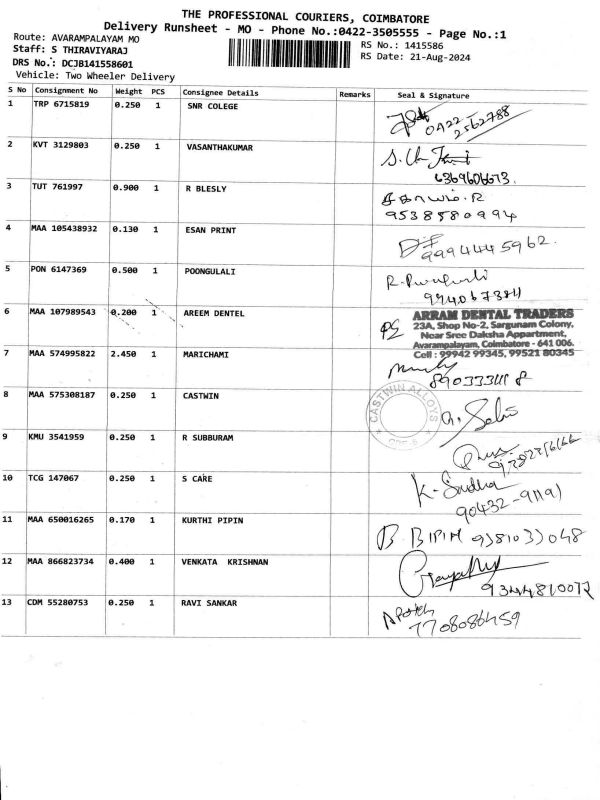 THE PROFESSIONAL COURIERS, COIMBATORE
Delivery Runsheet - MO - Phone No.:0422-3505555 - Page No.:1
Route: AVARAMPALAYAM MO
Staff: S THIRAVIYARAJ
DRS No.: DCJB141558601
Vehicle: Two Wheeler Delivery
RS No.: 1415586
RS Date: 21-Aug-2024
S No Consignment No Weight PCS Consignee Details Remarks Seal & Signature
1 TRP 6715819 0.250 1 SNR COLEGE
0422 2562788
2 KVT 3129803 0.250 1 VASANTHAKUMAR
6369606673.
3 TUT 761997 0.900 1 R BLESLY
9538580994
4 MAA 105438932 0.130 1 ESAN PRINT
9994445962.
5 PON 6147369 0.500 1 POONGULALI
6 MAA 107989543 0.200 1 AREEM DENTEL
ARRAM DENTAL TRADERS
23A, Shop No-2, Sargunam Colony,
Near Sree Daksha Appartment,
Avarampalayam, Coimbatore - 641 006.
Cell : 99942 99345, 99521 80345
7 MAA 574995822 2.450 1 MARICHAMI
8 MAA 575308187 0.250 1 CASTWIN
CASTWIN ALLOYS
9 KMU 3541959 0.250 1 R SUBBURAM
10 TCG 147067 0.250 1 S CARE
K. Sudha
11 MAA 650016265 0.170 1 KURTHI PIPIN
B. BIPIN 9381033048
12 MAA 866823734 0.400 1 VENKATA KRISHNAN
9344810072
13 CDM 55280753 0.250 1 RAVI SANKAR
7708086459